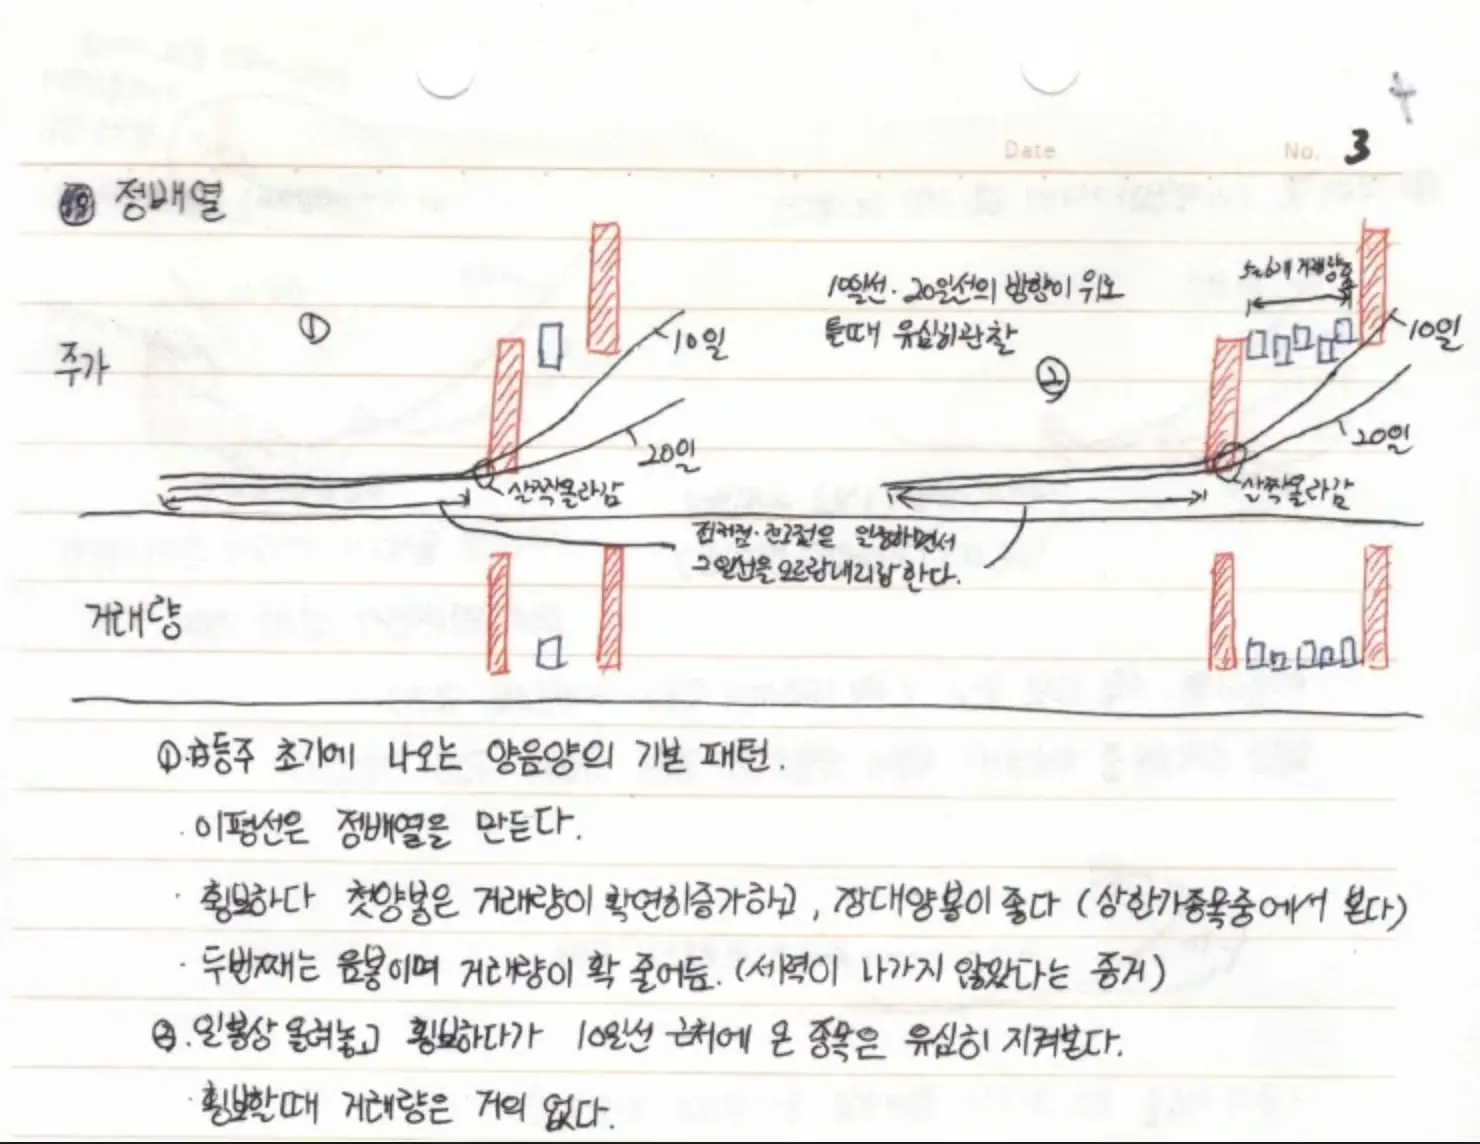 4
Date
No. 3
정배열
주가
①
10일
20일
살짝올라감
10일선·20일선의 방향이 위로
틀때 유심히관찰
②
5~6개 거래량
10일
20일
살짝올라감
전저점·전고점은 일정하면서
그 일선을 오르락내리락 한다.
거래량
①. 급등주 초기에 나오는 양음양의 기본 패턴.
· 이평선은 정배열을 만든다.
· 횡보하다 첫양봉은 거래량이 확연히증가하고, 장대양봉이 좋다 (상한가종목중에서 본다)
· 두번째는 음봉이며 거래량이 확 줄어듬. (세력이 나가지 않았다는 증거)
②. 일봉상 올려놓고 횡보하다가 10일선 근처에 온 종목은 유심히 지켜본다.
· 횡보할때 거래량은 거의 없다.